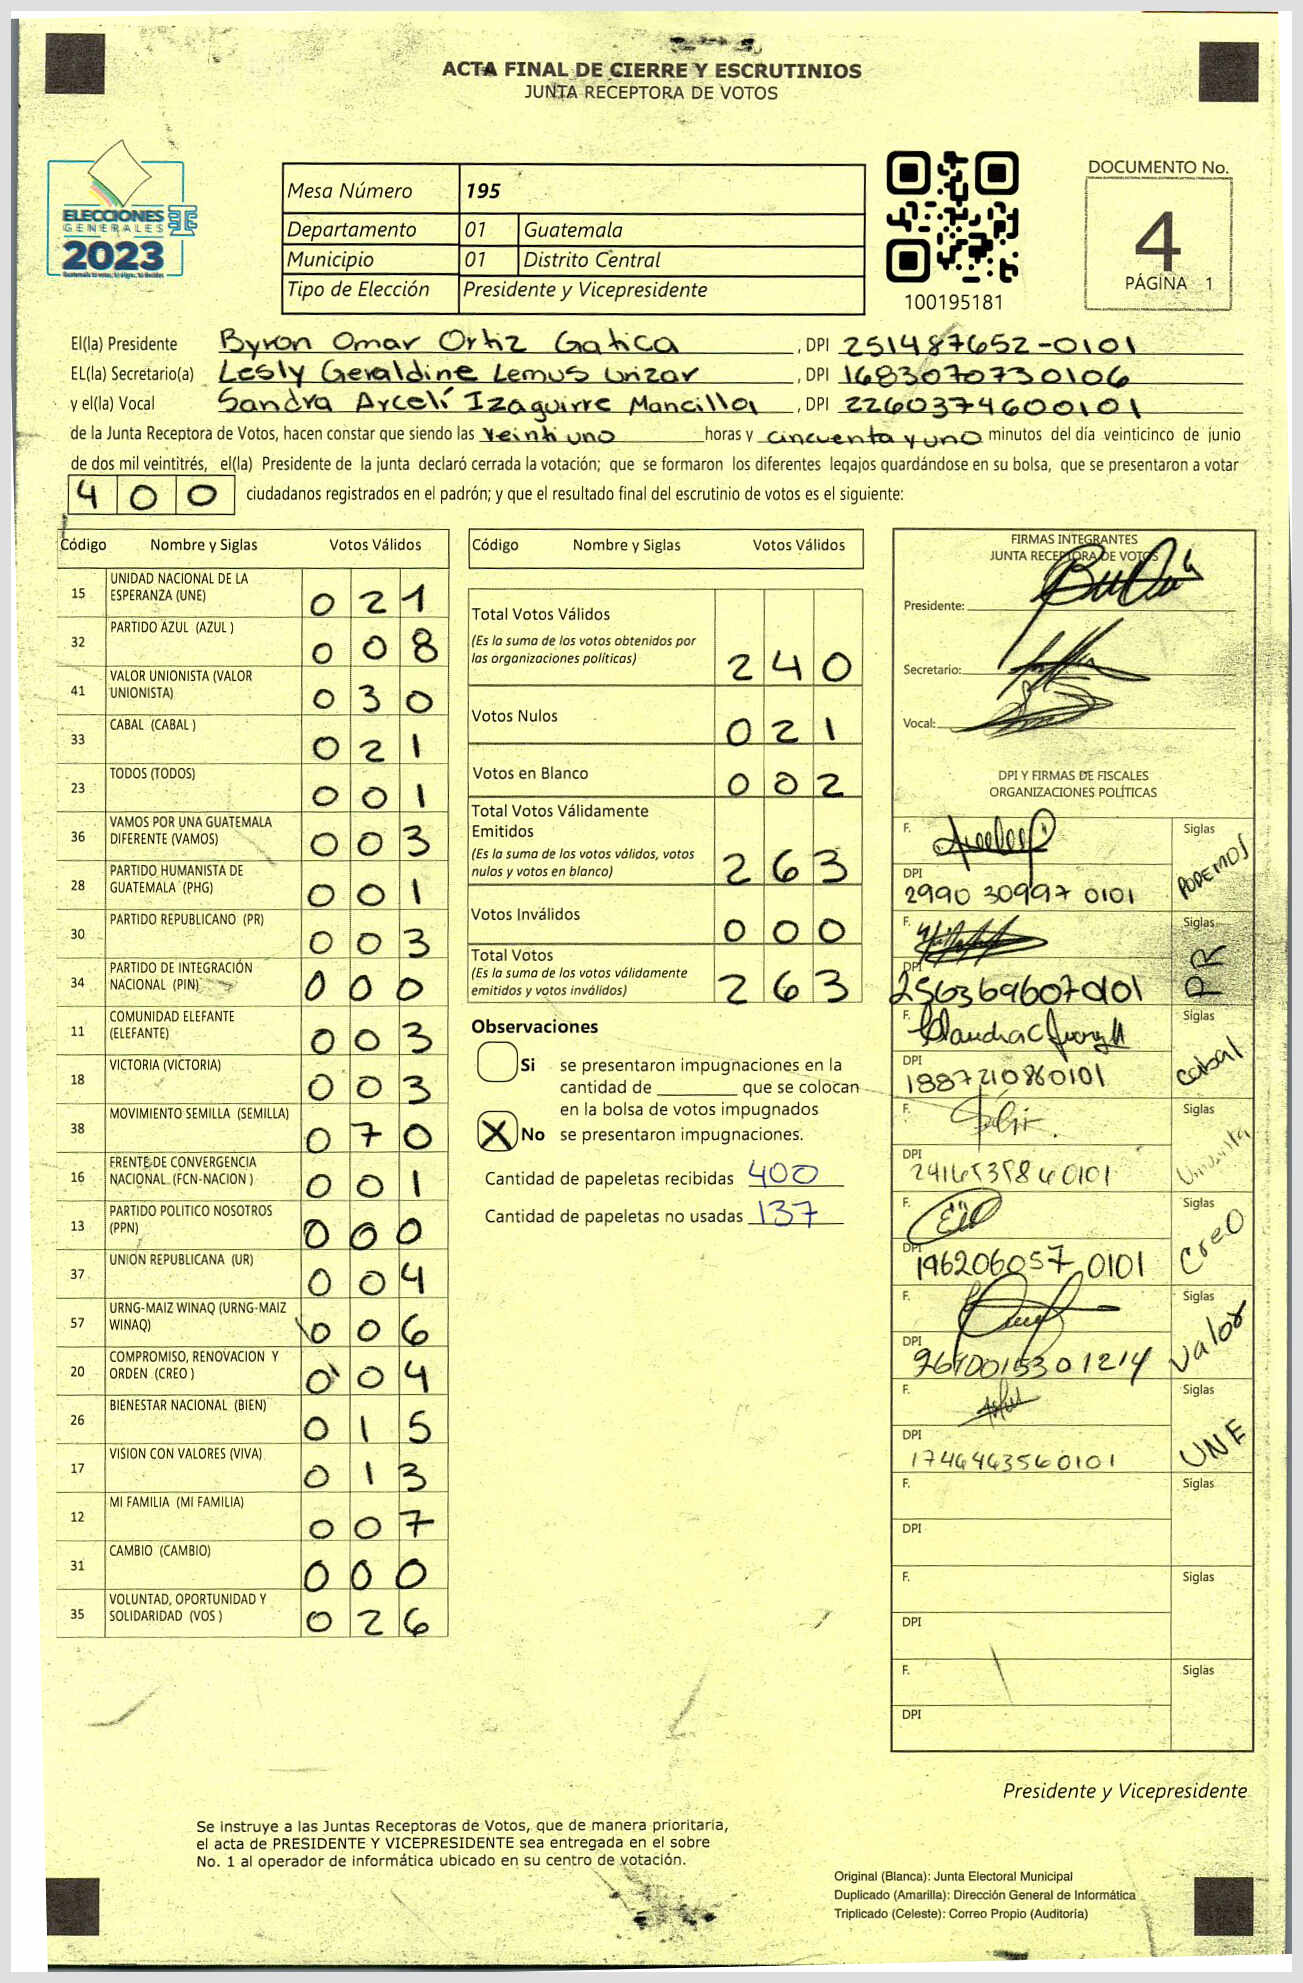 ACTA FINAL DE CIERRE Y ESCRUTINIOS
JUNTA RECEPTORA DE VOTOS
ELECCIONES
GENERALES
2023
Mesa Número 195
Departamento 01 Guatemala
Municipio 01 Distrito Central
Tipo de Elección Presidente y Vicepresidente
100195181
DOCUMENTO No.
4
PÁGINA 1
El(la) Presidente Byron Omar Ortiz Gatica, DPI 251487652-0101
EL(la) Secretario(a) Lesly Geraldine Lemus Urizar, DPI 1683070730106
y el(la) Vocal Sandra Arcelí Izaguirre Mancilla, DPI 2260374600101
de la Junta Receptora de Votos, hacen constar que siendo las veintiuno horas y cincuenta y uno minutos del día veinticinco de junio
de dos mil veintitrés, el(la) Presidente de la junta declaró cerrada la votación; que se formaron los diferentes legajos guardándose en su bolsa, que se presentaron a votar
400 ciudadanos registrados en el padrón; y que el resultado final del escrutinio de votos es el siguiente:
Código Nombre y Siglas Votos Válidos
15 UNIDAD NACIONAL DE LA ESPERANZA (UNE) 021
32 PARTIDO AZUL (AZUL ) 008
41 VALOR UNIONISTA (VALOR UNIONISTA) 030
33 CABAL (CABAL ) 021
23 TODOS (TODOS) 001
36 VAMOS POR UNA GUATEMALA DIFERENTE (VAMOS) 003
28 PARTIDO HUMANISTA DE GUATEMALA (PHG) 001
30 PARTIDO REPUBLICANO (PR) 003
34 PARTIDO DE INTEGRACIÓN NACIONAL (PIN) 000
11 COMUNIDAD ELEFANTE (ELEFANTE) 003
18 VICTORIA (VICTORIA) 003
38 MOVIMIENTO SEMILLA (SEMILLA) 070
16 FRENTE DE CONVERGENCIA NACIONAL (FCN-NACION ) 001
13 PARTIDO POLITICO NOSOTROS (PPN) 000
37 UNION REPUBLICANA (UR) 004
57 URNG-MAIZ WINAQ (URNG-MAIZ WINAQ) 006
20 COMPROMISO, RENOVACION Y ORDEN (CREO ) 004
26 BIENESTAR NACIONAL (BIEN) 015
17 VISION CON VALORES (VIVA) 013
12 MI FAMILIA (MI FAMILIA) 007
31 CAMBIO (CAMBIO) 000
35 VOLUNTAD, OPORTUNIDAD Y SOLIDARIDAD (VOS ) 026
Código Nombre y Siglas Votos Válidos
Total Votos Válidos
(Es la suma de los votos obtenidos por
las organizaciones políticas) 240
Votos Nulos 021
Votos en Blanco 002
Total Votos Válidamente
Emitidos
(Es la suma de los votos válidos, votos
nulos y votos en blanco) 263
Votos Inválidos 000
Total Votos
(Es la suma de los votos válidamente
emitidos y votos inválidos) 263
Observaciones
Si se presentaron impugnaciones en la
cantidad de ________ que se colocan
en la bolsa de votos impugnados
X No se presentaron impugnaciones.
Cantidad de papeletas recibidas 400
Cantidad de papeletas no usadas 137
FIRMAS INTEGRANTES
JUNTA RECEPTORA DE VOTOS
Presidente:
Secretario:
Vocal:
DPI Y FIRMAS DE FISCALES
ORGANIZACIONES POLÍTICAS
F. Siglas PODEMOS
DPI 2990 30997 0101
F. Siglas PR
DPI 2563696070101
F. Siglas Cabal
DPI 1887210860101
F. Siglas Unionista
DPI
F. Siglas Creo
DPI 196206057 0101
F. Siglas Valor
DPI
F. Siglas UNE
DPI 1746463560101
F. Siglas
DPI
F. Siglas
DPI
F. Siglas
DPI
Presidente y Vicepresidente
Se instruye a las Juntas Receptoras de Votos, que de manera prioritaria,
el acta de PRESIDENTE Y VICEPRESIDENTE sea entregada en el sobre
No. 1 al operador de informática ubicado en su centro de votación.
Original (Blanca): Junta Electoral Municipal
Duplicado (Amarilla): Dirección General de Informática
Triplicado (Celeste): Correo Propio (Auditoría)